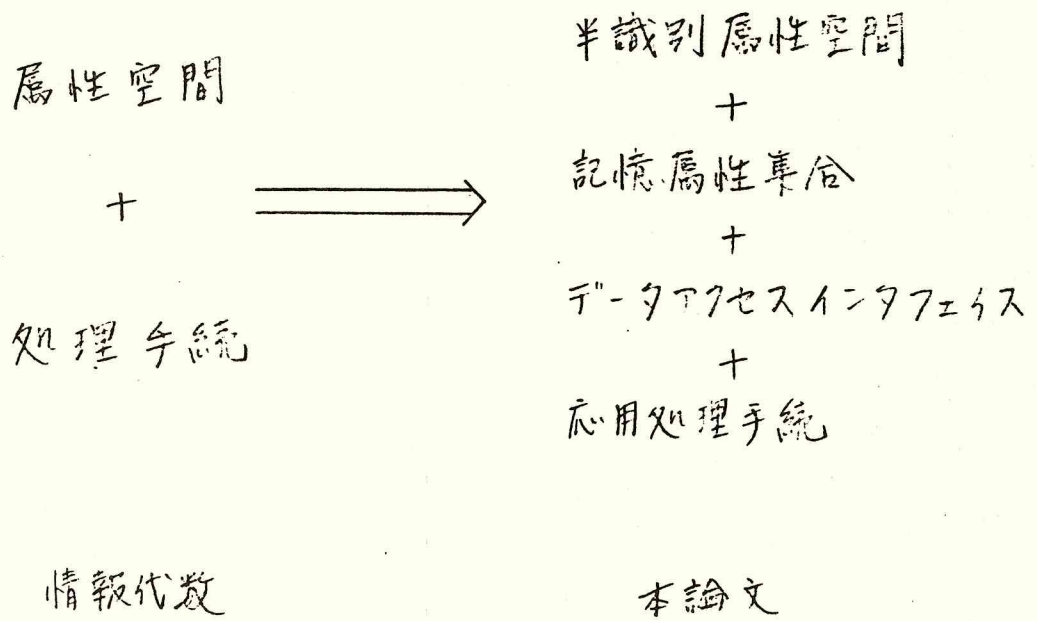 属性空間
+
処理手続
情報代数
半識別属性空間
+
記憶属性集合
+
データアクセスインタフェイス
+
応用処理手続
本論文